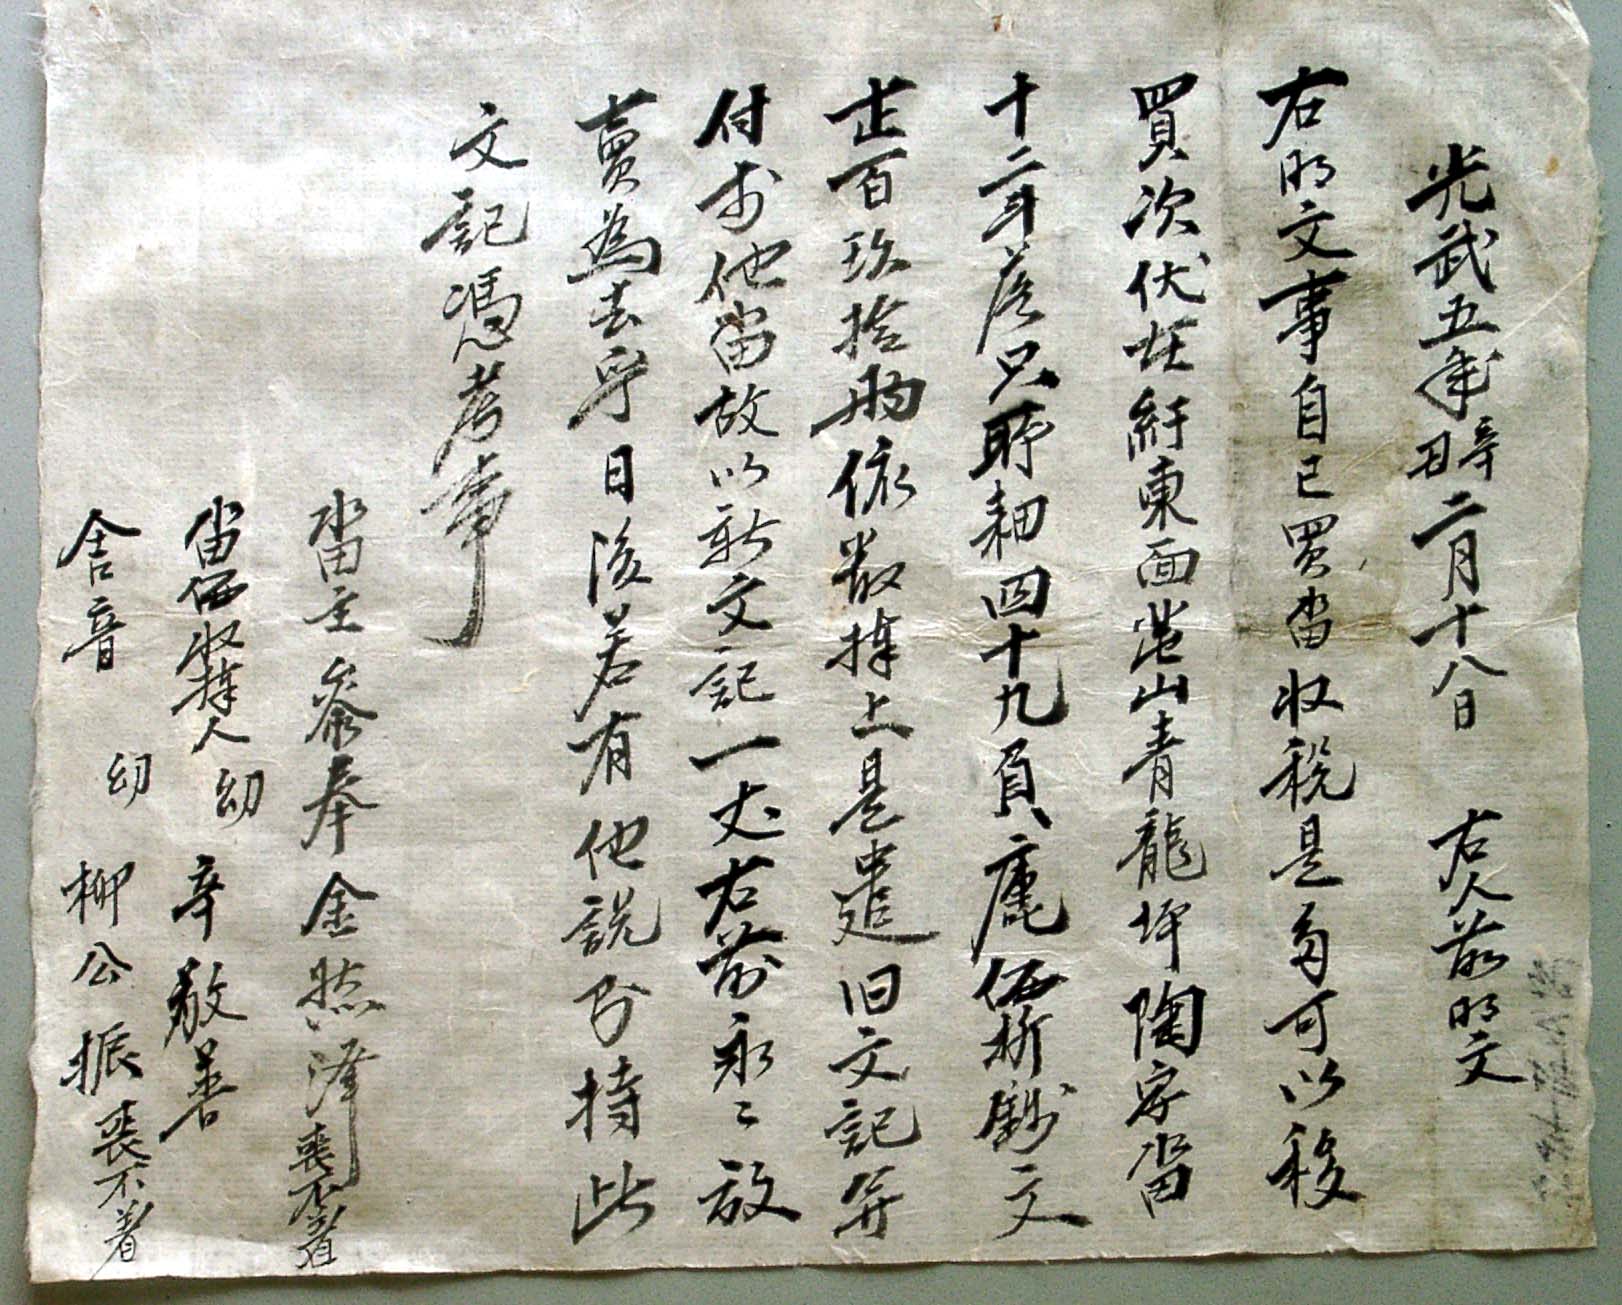 光武五年辛丑二月十八日 右人前明文
右明文事自己買畓収税是多可以移
買次伏在紆東面崑山青龍坪陶字畓
十二斗落只所耕四十九負庫価折錢文
壱百玖拾両依數捧上是遣旧文記并
付於他畓故以新文記一丈右前永〻放
賣為去乎日後若有他説則持此
文記憑考事
畓主參奉金然澤喪不着
畓価収捧人 幼 辛敬善
舎音 幼 柳公振喪不着